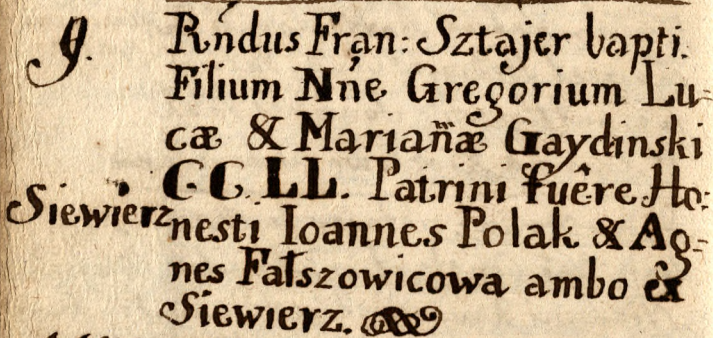 9. Rñdus Fran: Sztajer bapti.
Filium Nñe Gregorium Lu=
cæ & Marianæ Gaydinski
C.C. LL. Patrini fuêre Ho:
Siewierz nesti Ioannes Polak & Ag=
nes Fałszowicowa ambo ex
Siewierz.